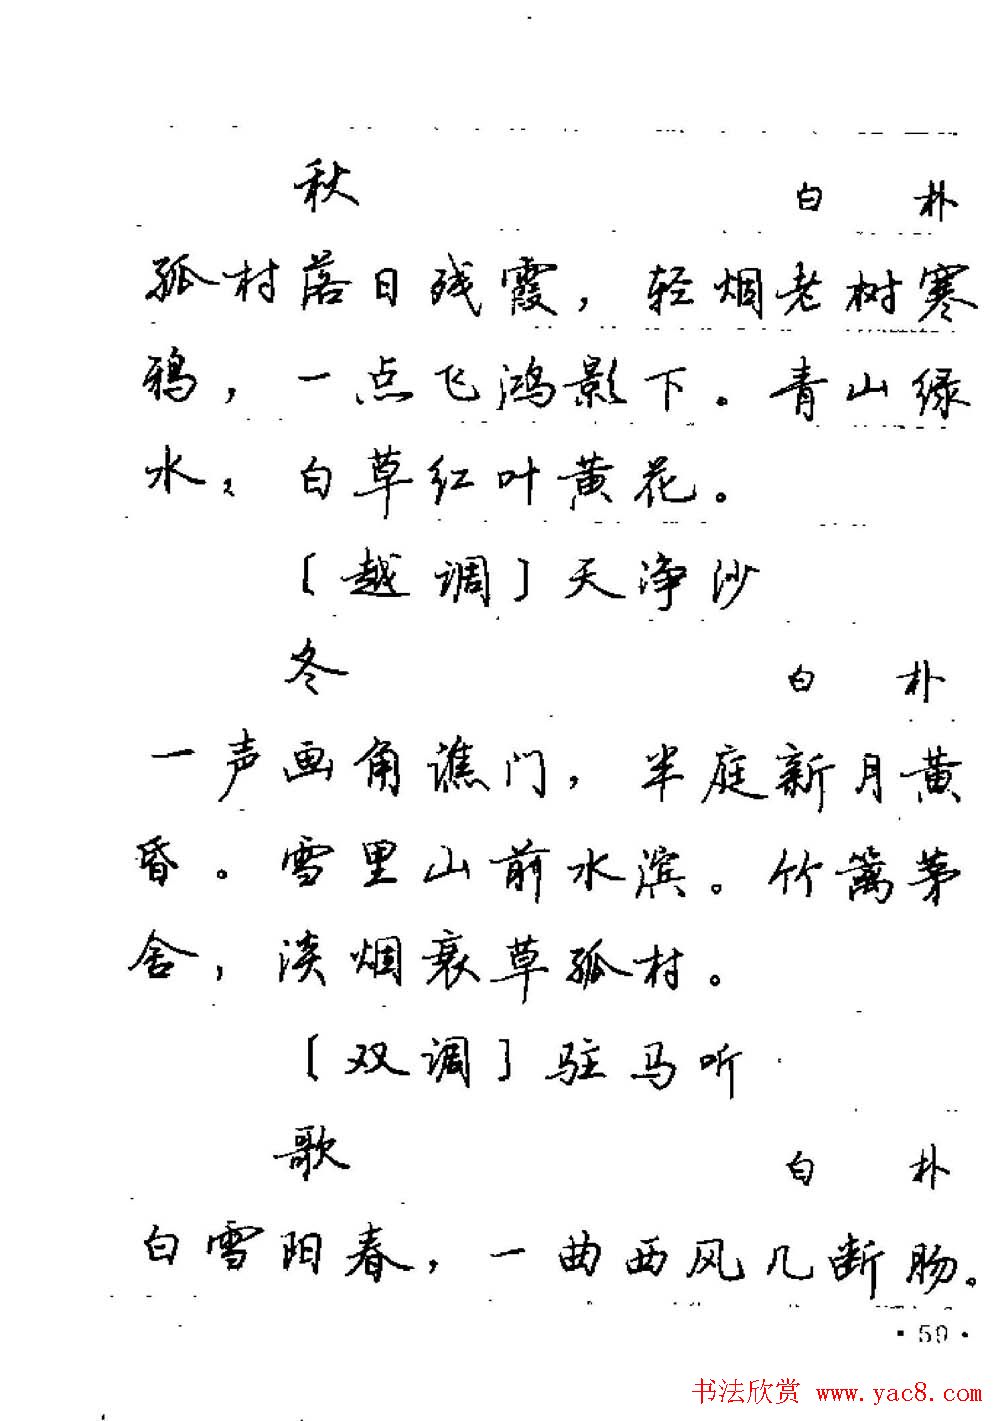 秋 白 朴
孤村落日残霞，轻烟老树寒
鸦，一点飞鸿影下。青山绿
水，白草红叶黄花。
〔越调〕天净沙
冬 白 朴
一声画角谯门，半庭新月黄
昏。雪里山前水滨。竹篱茅
舍，淡烟衰草孤村。
〔双调〕驻马听
歌 白 朴
白雪阳春，一曲西风几断肠。
·59·
书法欣赏 www.yac8.com